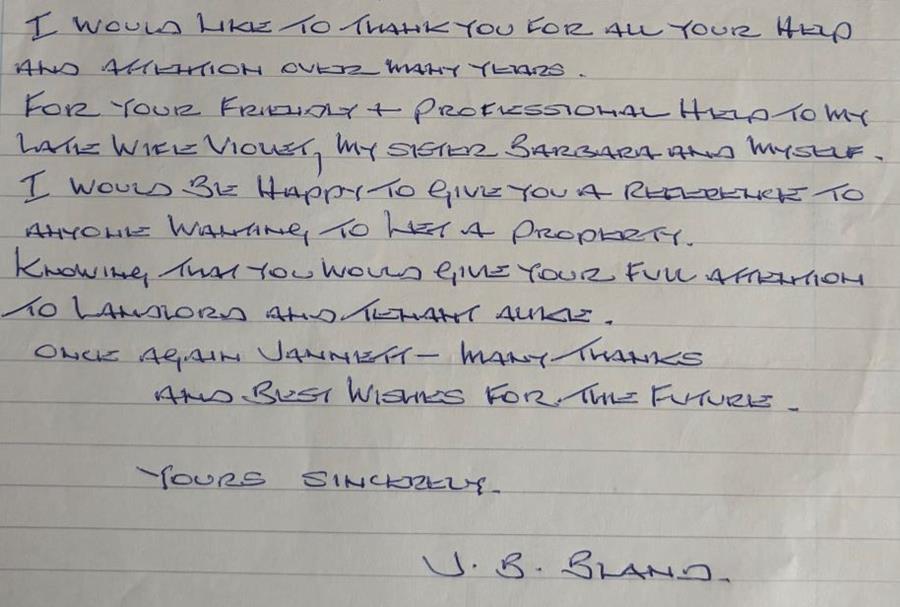 I WOULD LIKE TO THANK YOU FOR ALL YOUR HELP
AND ATTENTION OVER MANY YEARS.
FOR YOUR FRIENDLY + PROFESSIONAL HELP TO MY
LATE WIFE VIOLET, MY SISTER BARBARA AND MYSELF.
I WOULD BE HAPPY TO GIVE YOU A REFERENCE TO
ANYONE WANTING TO LET A PROPERTY.
KNOWING THAT YOU WOULD GIVE YOUR FULL ATTENTION
TO LANDLORD AND TENANT ALIKE.
ONCE AGAIN JANNETT – MANY THANKS
AND BEST WISHES FOR THE FUTURE.
YOURS SINCERELY.
V. B. BLAND.